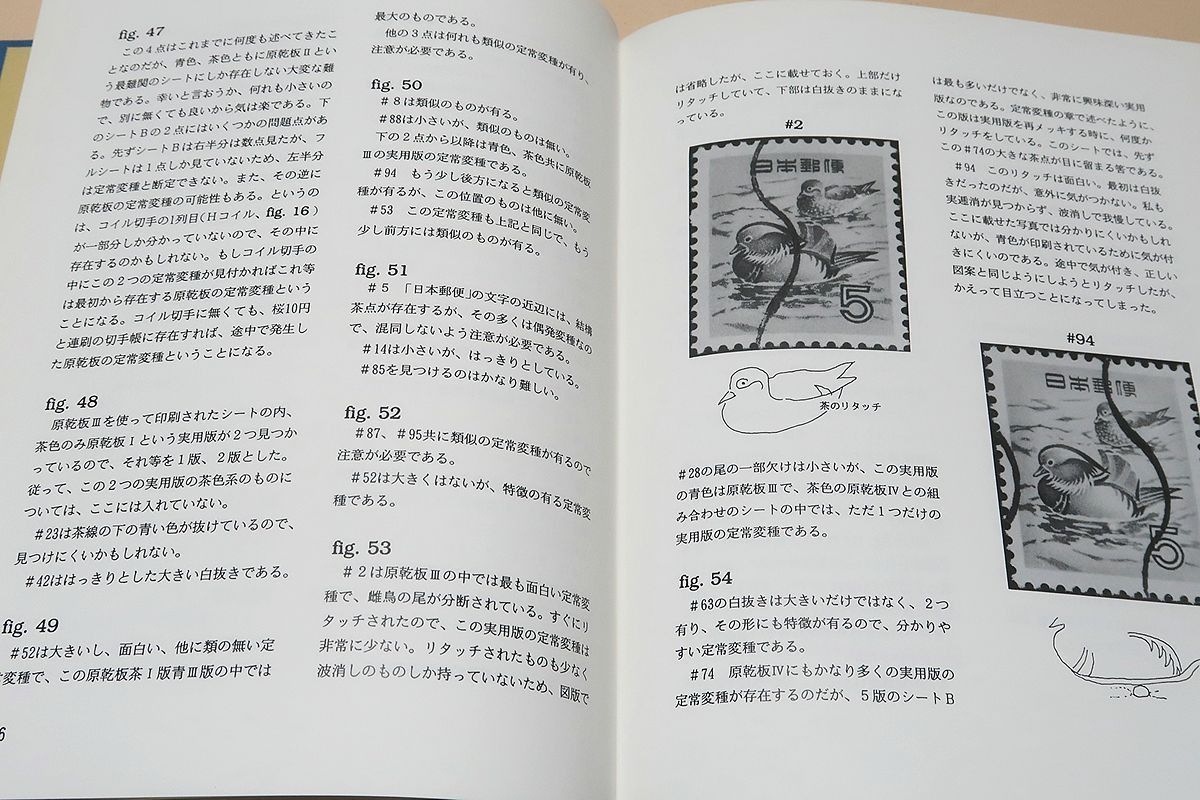 fig. 47
この４点はこれまでに何度も述べてきたこ
となのだが、青色、茶色ともに原乾板Ⅱとい
う最難関のシートにしか存在しない大変な難
物である。幸いと言おうか、何れも小さいの
で、別に無くても良いから気は楽である。下
のシートＢの２点にはいくつかの問題点があ
る。先ずシートＢは右半分は数点見たが、フ
ルシートは１点しか見ていないため、左半分
は定常変種と断定できない。また、その逆に
原乾板の定常変種の可能性もある。というの
は、コイル切手の1列目(Ｈコイル、fig. 16）
が一部分しか分かっていないので、その中に
存在するのかもしれない。もしコイル切手の
中にこの２つの定常変種が見付かればこれ等
は最初から存在する原乾板の定常変種という
ことになる。コイル切手に無くても、桜10円
と連刷の切手帳に存在すれば、途中で発生し
た原乾板の定常変種ということになる。
fig. 48
原乾板Ⅲを使って印刷されたシートの内、
茶色のみ原乾板Ⅰという実用版が２つ見つか
っているので、それ等を１版、２版とした。
従って、この２つの実用版の茶色系のものに
ついては、ここには入れていない。
＃23は茶線の下の青い色が抜けているので、
見つけにくいかもしれない。
＃42ははっきりとした大きい白抜きである。
fig. 49
＃52は大きいし、面白い、他に類の無い定
常変種で、この原乾板茶Ⅰ版青Ⅲ版の中では
6
最大のものである。
他の３点は何れも類似の定常変種が有り、
注意が必要である。
fig. 50
＃８は類似のものが有る。
＃88は小さいが、類似のものは無い。
下の２点から以降は青色、茶色共に原乾板
Ⅲの実用版の定常変種である。
＃94　もう少し後方になると類似の定常変
種が有るが、この位置のものは他に無い。
＃53　この定常変種も上記と同じで、もう
少し前方には類似のものが有る。
fig. 51
＃５　「日本郵便」の文字の近辺には、結構
茶点が存在するが、その多くは偶発変種なの
で、混同しないよう注意が必要である。
＃14は小さいが、はっきりとしている。
＃85を見つけるのはかなり難しい。
fig. 52
＃87、＃95共に類似の定常変種が有るので
注意が必要である。
＃52は大きくはないが、特徴の有る定常変
種である。
fig. 53
＃２は原乾板Ⅲの中では最も面白い定常変
種で、雌鳥の尾が分断されている。すぐにリ
タッチされたので、この実用版の定常変種は
非常に少ない。リタッチされたものも少なく
波消しのものしか持っていないため、図版で
は省略したが、ここに載せておく。上部だけ
リタッチしていて、下部は白抜きのままにな
っている。
#2
日本郵便
5
茶のリタッチ
＃28の尾の一部欠けは小さいが、この実用版
の青色は原乾板Ⅲで、茶色の原乾板Ⅳとの組
み合わせのシートの中では、ただ１つだけの
実用版の定常変種である。
fig. 54
＃63の白抜きは大きいだけではなく、２つ
有り、その形にも特徴が有るので、分かりや
すい定常変種である。
＃74　原乾板Ⅳにもかなり多くの実用版の
定常変種が存在するのだが、５版のシートＢ
は最も多いだけでなく、非常に興味深い実用
版なのである。定常変種の章で述べたように、
この版は実用版を再メッキする時に、何度か
リタッチをしている。このシートでは、先ず
この＃74の大きな茶点が目に留まる筈である。
＃94　このリタッチは面白い。最初は白抜
きだったのだが、意外に気がつかない。私も
実逓消が見つからず、波消しで我慢している。
ここに載せた写真では分かりにくいかもしれ
ないが、青色が印刷されているために気が付
きにくいのである。途中で気が付き、正しい
図案と同じようにしようとリタッチしたが、
かえって目立つことになってしまった。
#94
日本郵便
5